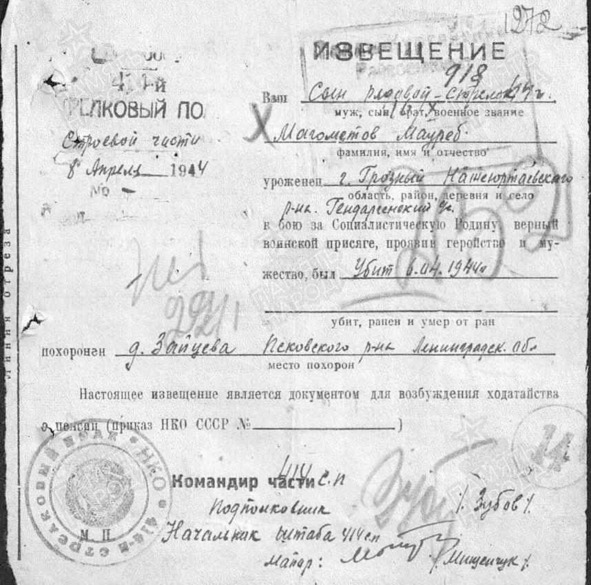 1272
ИЗВЕЩЕНИЕ
918
414-й
СТРЕЛКОВЫЙ ПОЛ
Строевой части
8 Апрель 1944
No -
Ваш Сын рядовой-стрелок
муж, сын, брат, военное звание
Магометов Мауреб
фамилия, имя и отчество
уроженец г. Грозный
область, район, деревня и село
р-на.
в бою за Социалистическую Родину, верный
воинской присяге, проявив геройство и му-
жество, был Убит 6.04.1944г
убит, ранен и умер от ран
похоронен д. Зайцева Псковского р-на Ленинградск. обл
место похорон
Настоящее извещение является документом для возбуждения ходатайства
о пенсии (приказ НКО СССР № )
Линия отреза
14
Командир части 414 с.п
Подполковник / Зубов /.
Начальник штаба 414 сп
майор: / Мищенчук /.
414-й СТРЕЛКОВЫЙ ПОЛК * НКО *
М П